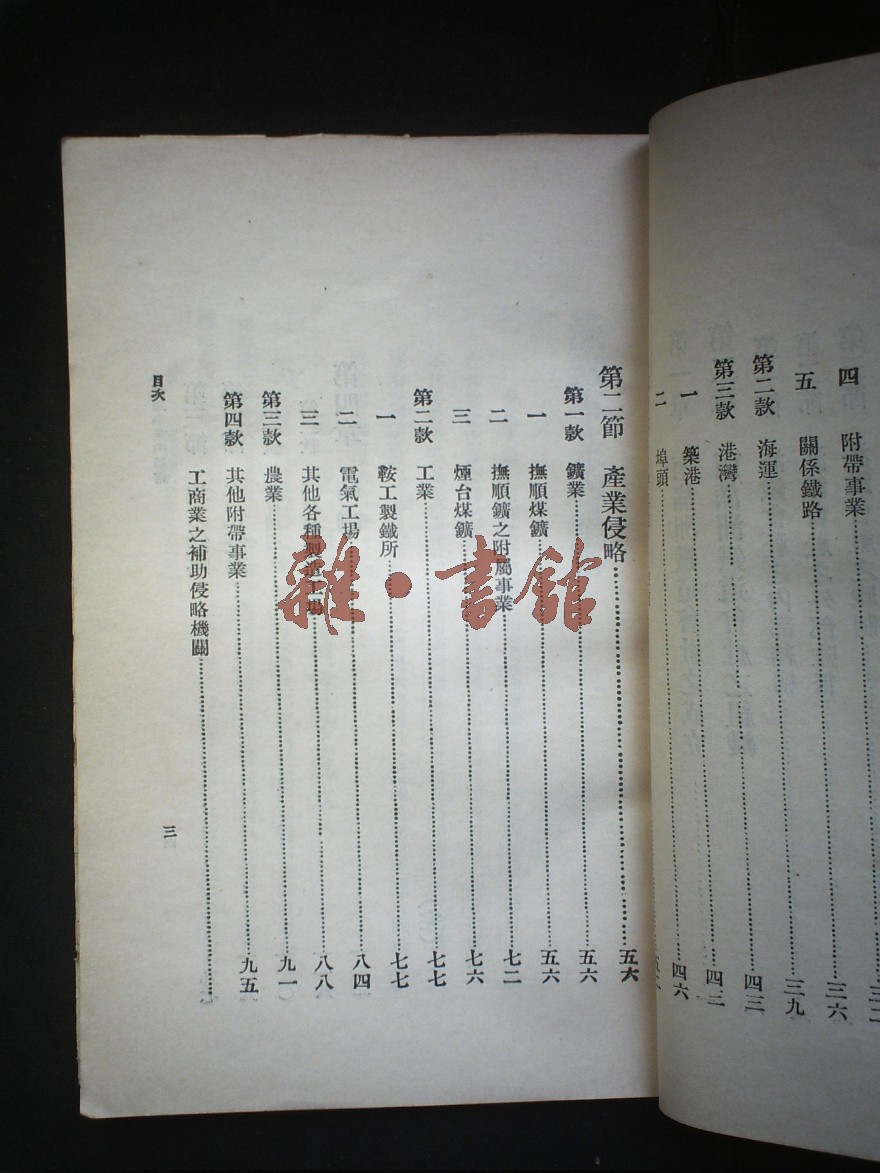 三二
四 附帶事業……三六
五 關係鐵路……三九
第二款 海運……四三
第三款 港灣……四三
一 築港……四六
二 埠頭……五二
第二節 產業侵略……五六
第一款 鑛業……五六
一 撫順煤鑛……五六
二 撫順鑛之附屬事業……七二
三 煙台煤鑛……七六
第二款 工業……七七
一 鞍工製鐵所……七七
二 電氣工場……八四
三 其他各種製造工場……八八
第三款 農業……九一
第四款 其他附帶事業……九五
工商業之補助侵略機關……
目次
三
雜·書館